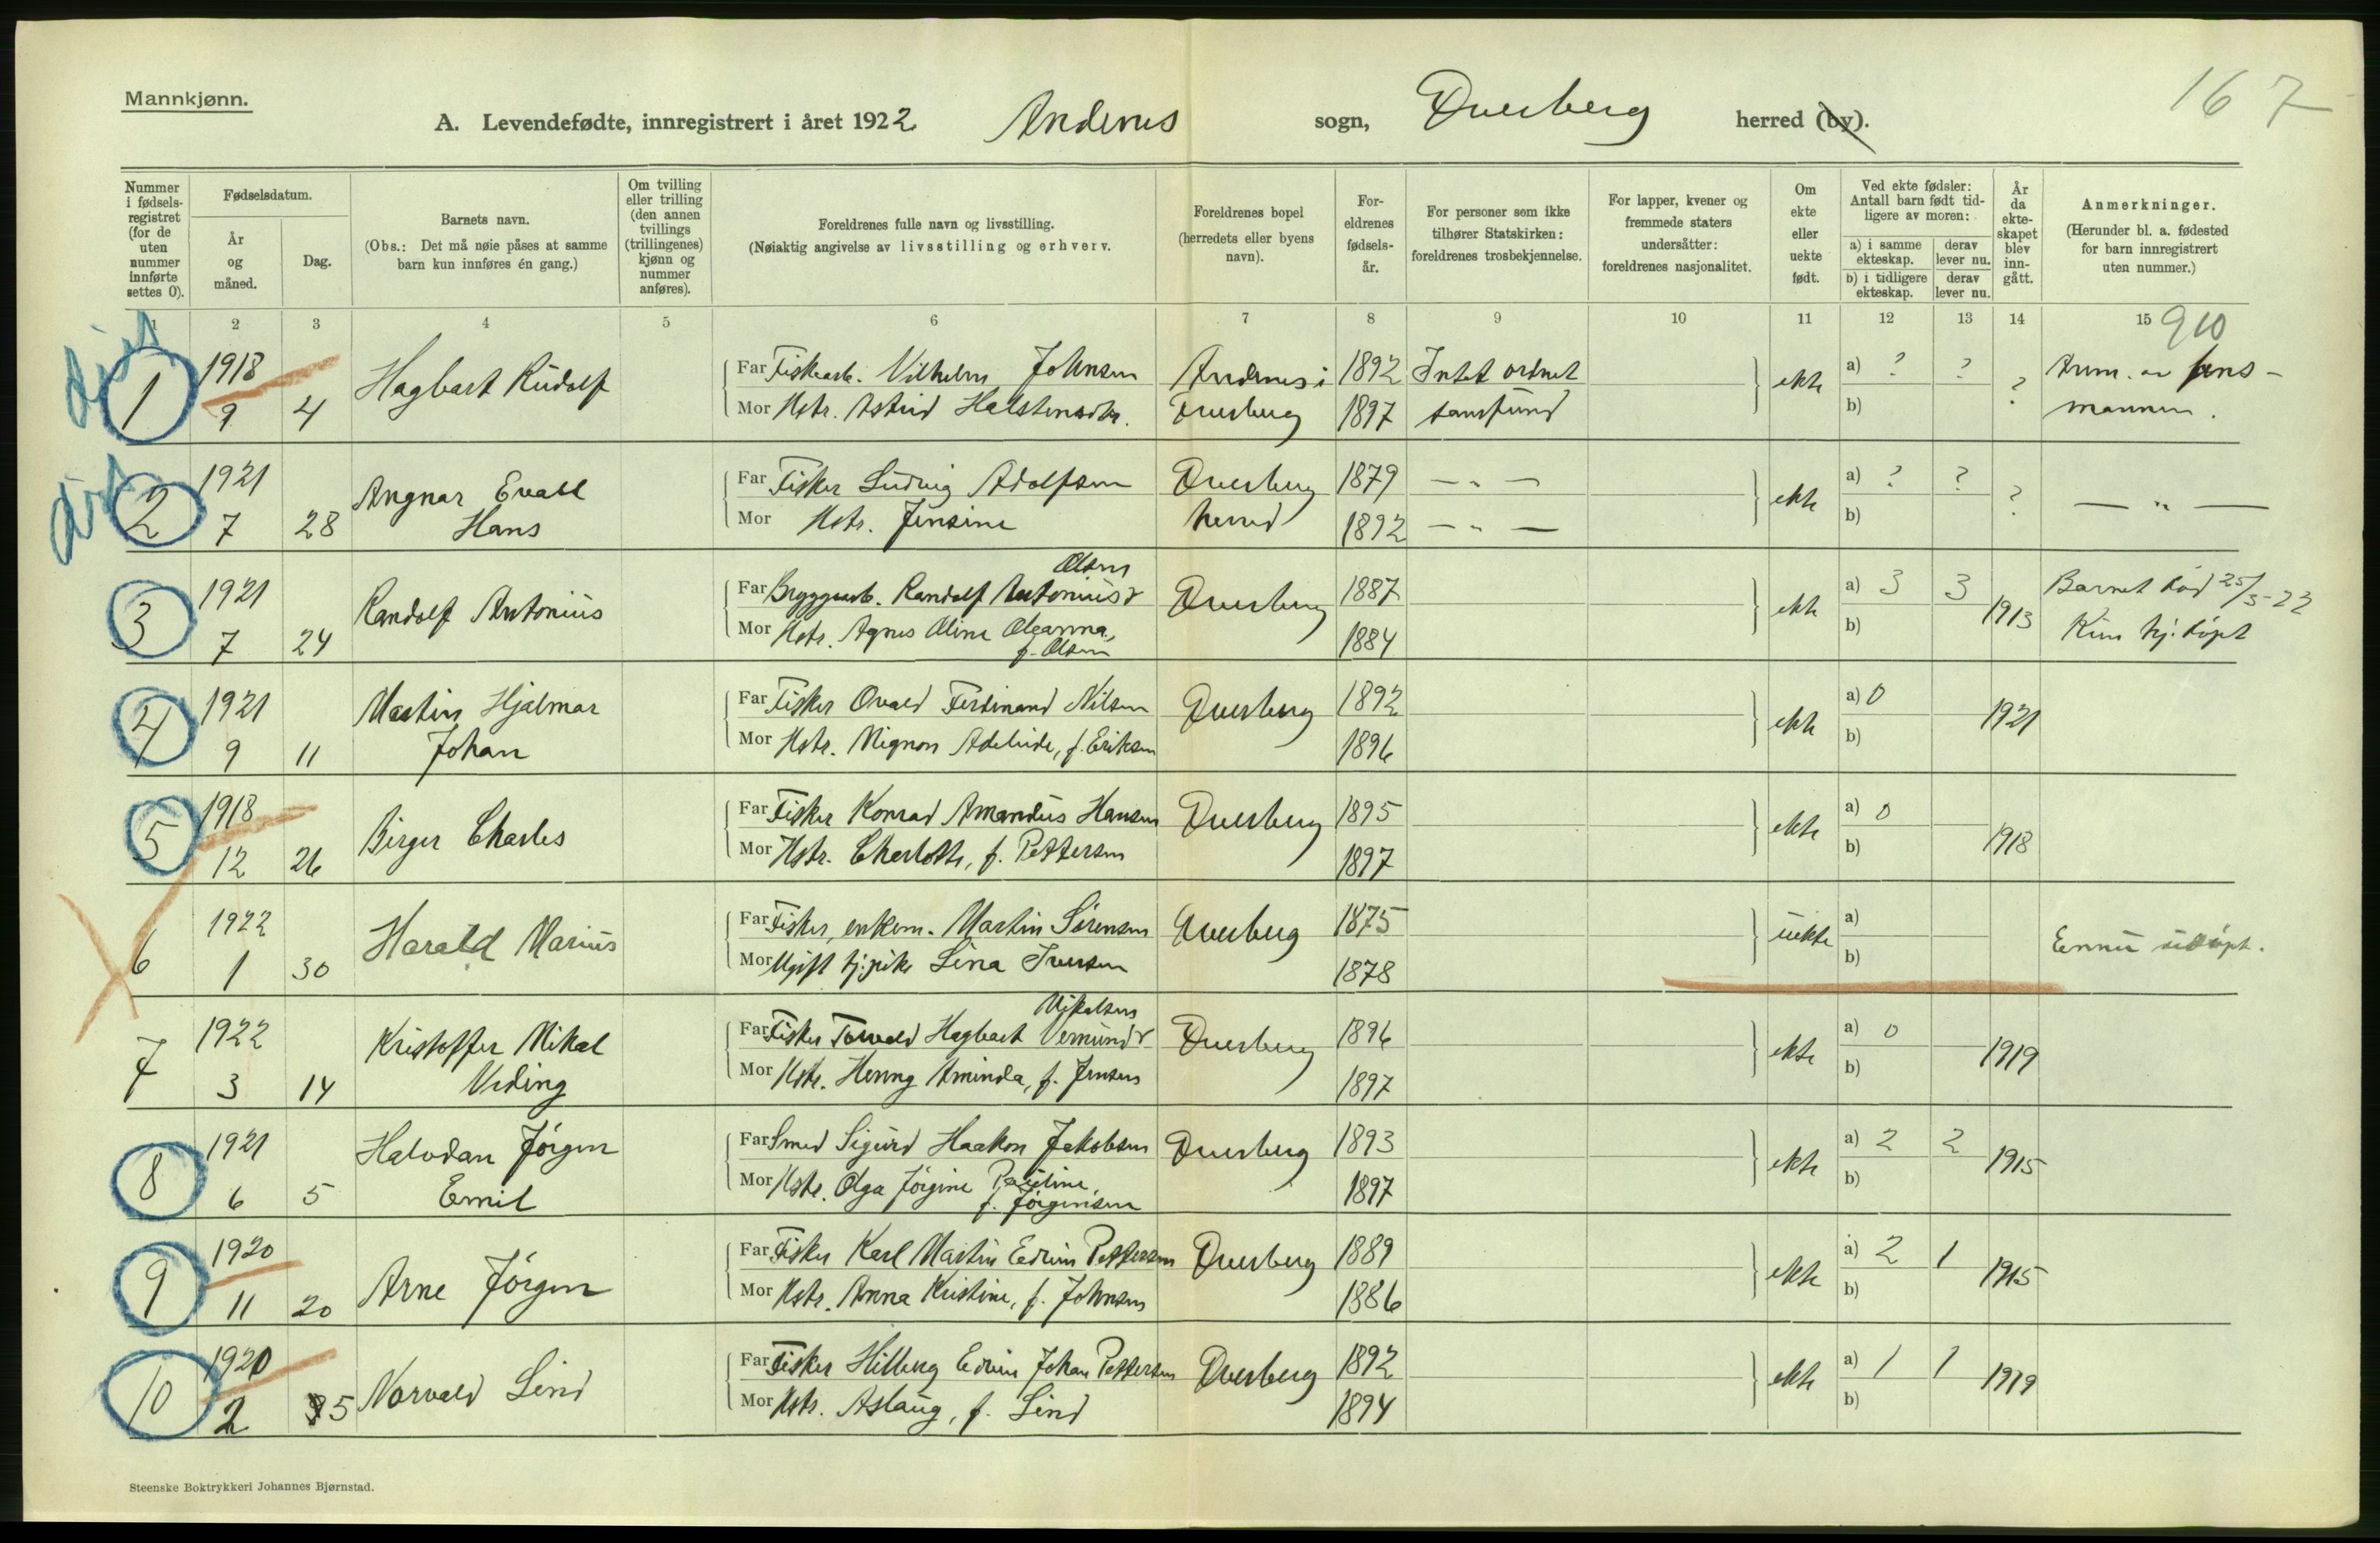 Mannkjønn.
167
A. Levendefødte, innregistrert i året 1922 Andenes sogn, Dverberg herred (by).
Nummer i fødsels-registret (for de uten nummer innførte settes 0).
Fødselsdatum.
År og måned.
Dag.
Barnets navn.
(Obs.: Det må nøie påses at samme barn kun innføres én gang.)
Om tvilling eller trilling (den annen tvillings (trillingenes) kjønn og nummer anføres).
Foreldrenes fulle navn og livsstilling.
(Nøiaktig angivelse av livsstilling og erhverv.
Foreldrenes bopel (herredets eller byens navn).
For-eldrenes fødsels-år.
For personer som ikke tilhører Statskirken: foreldrenes trosbekjennelse.
For lapper, kvener og fremmede staters undersåtter: foreldrenes nasjonalitet.
Om ekte eller uekte født.
Ved ekte fødsler: Antall barn født tid-ligere av moren:
a) i samme ekteskap.
derav lever nu.
b) i tidligere ekteskap.
derav lever nu.
År da ekte-skapet blev inn-gått.
Anmerkninger.
(Herunder bl. a. fødested for barn innregistrert uten nummer.)
1 2 3 4 5 6 7 8 9 10 11 12 13 14 15 910
1 1918 Hagbart Rudolf Far Fiskearb. Vilhelm Johnsen Andenes i 1892 Intet ordnet ekte a) ? ? ? Anm. av lens-
9 4 Mor Hstr. Astrid Halstensdtr. Dverberg 1897 samfund b) mannen.
2 1921 Angnar Evald Far Fisker Ludvig Adolfsen Dverberg 1879 — " — ekte a) ? ? ? — " —
7 28 Hans Mor Hstr. Jensine herred 1892 — " — b)
Olsen
3 1921 Randolf Antonius Far Bryggearb. Randolf Antonius Dverberg 1887 ekte a) 3 3 1913 Barnet død 25/5-22
7 24 Mor Hstr. Agnes Oline Olganna, 1884 b) Kun hj. døpt
f. Olsen
4 1921 Martin Hjalmar Far Fisker Ovald Ferdinand Nilsen Dverberg 1892 ekte a) 0 1921
9 11 Johan Mor Hstr. Mignon Adeleide, f. Eriksen 1896 b)
5 1918 Birger Charles Far Fisker Konrad Amandus Hansen Dverberg 1895 ekte a) 0 — 1918
12 26 Mor Hstr. Charlotte, f. Pettersen 1897 b)
6 1922 Harald Marius Far Fisker, enkem. Martin Sørensen Dverberg 1875 uekte a) Ennu udøpt.
1 30 Mor Ugift tj.pike Lina Iversen 1878 b)
Mikalsen
7 1922 Kristoffer Mikal Far Fisker Torvald Hagbart Vermund Dverberg 1896 ekte a) 0 — 1919
3 14 Viding Mor Hstr. Henny Aminda, f. Jensen 1897 b)
8 1921 Halvdan Jørgen Far Smed Sigurd Haakon Jakobsen Dverberg 1893 ekte a) 2 2 1915
6 5 Emil Mor Hstr. Olga Jørgine Pauline, 1897 b)
f. Jørgensen
9 1920 Arne Jørgen Far Fisker Karl Martin Edvin Pettersen Dverberg 1889 ekte a) 2 1 1915
11 20 Mor Hstr. Anna Kristine, f. Johnsen 1886 b)
10 1920 Norvald Lind Far Fisker Hilberg Edvin Johan Pettersen Dverberg 1892 ekte a) 1 1 1919
2 5 Mor Hstr. Aslaug, f. Lind 1894 b)
Steenske Boktrykkeri Johannes Bjørnstad.